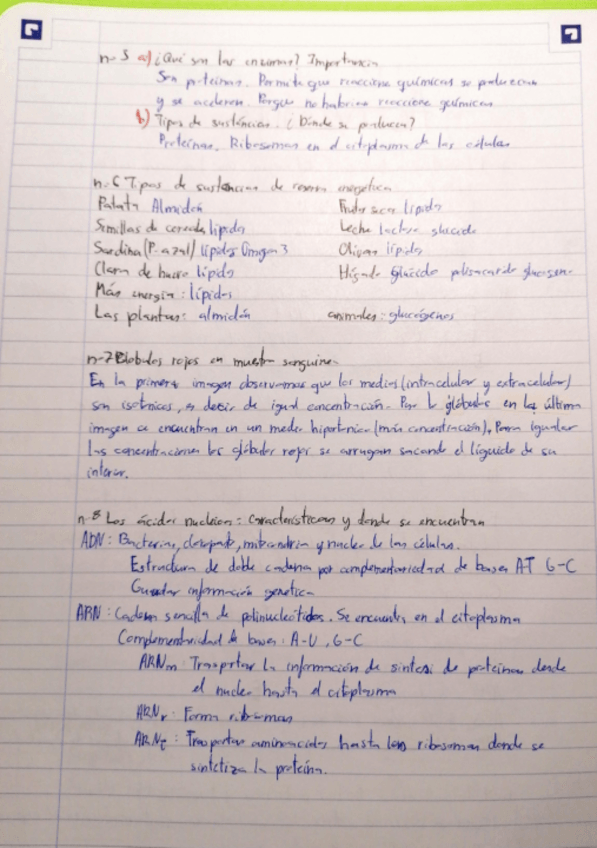 n-5 a) ¿Qué son las enzimas? Importancia
Son proteínas. Permite que reacciones químicas se produzcan
y se aceleren. Porque no habrían reacciones químicas
b) Tipos de sustancias. ¿Dónde se producen?
Proteínas. Ribosomas en el citoplasma de las células
n-6 Tipos de sustancias de reserva energética
Patata Almidón
Fruto seco lípido
Semillas de cereales lípidos
Leche lactosa glúcido
Sardina (P. azul) lípidos Omega 3
Olivas lípidos
Clara de huevo lípido
Hígado glúcido polisacárido glucogeno
Más energía: lípidos
Las plantas: almidón
animales: glucógenos
n-7 Glóbulos rojos en muestra sanguínea
En la primera imagen observamos que los medios (intracelular y extracelular)
son isotónicos, es decir de igual concentración. Por glóbulos en la última
imagen se encuentran en un medio hipertónico (más concentración), Para igualar
las concentraciones los glóbulos rojos se arrugan sacando el líquido de su
interior.
n-8 Los ácidos nucleicos: Características y donde se encuentran
ADN: Bacterias, cloroplasto, mitocondria y nucleo de las células.
Estructura de doble cadena por complementariedad de bases A-T G-C
Guardar información genética
ARN: Cadena sencilla de polinucleótidos. Se encuentra en el citoplasma
Complementariedad de bases: A-U, G-C
ARNm: Trasportar la información de sintesis de proteínas desde
el nucleo hasta el citoplasma
ARNr: Forma ribosomas
ARNt: Trasportar aminoacidos hasta los ribosomas donde se
sintetiza la proteína.